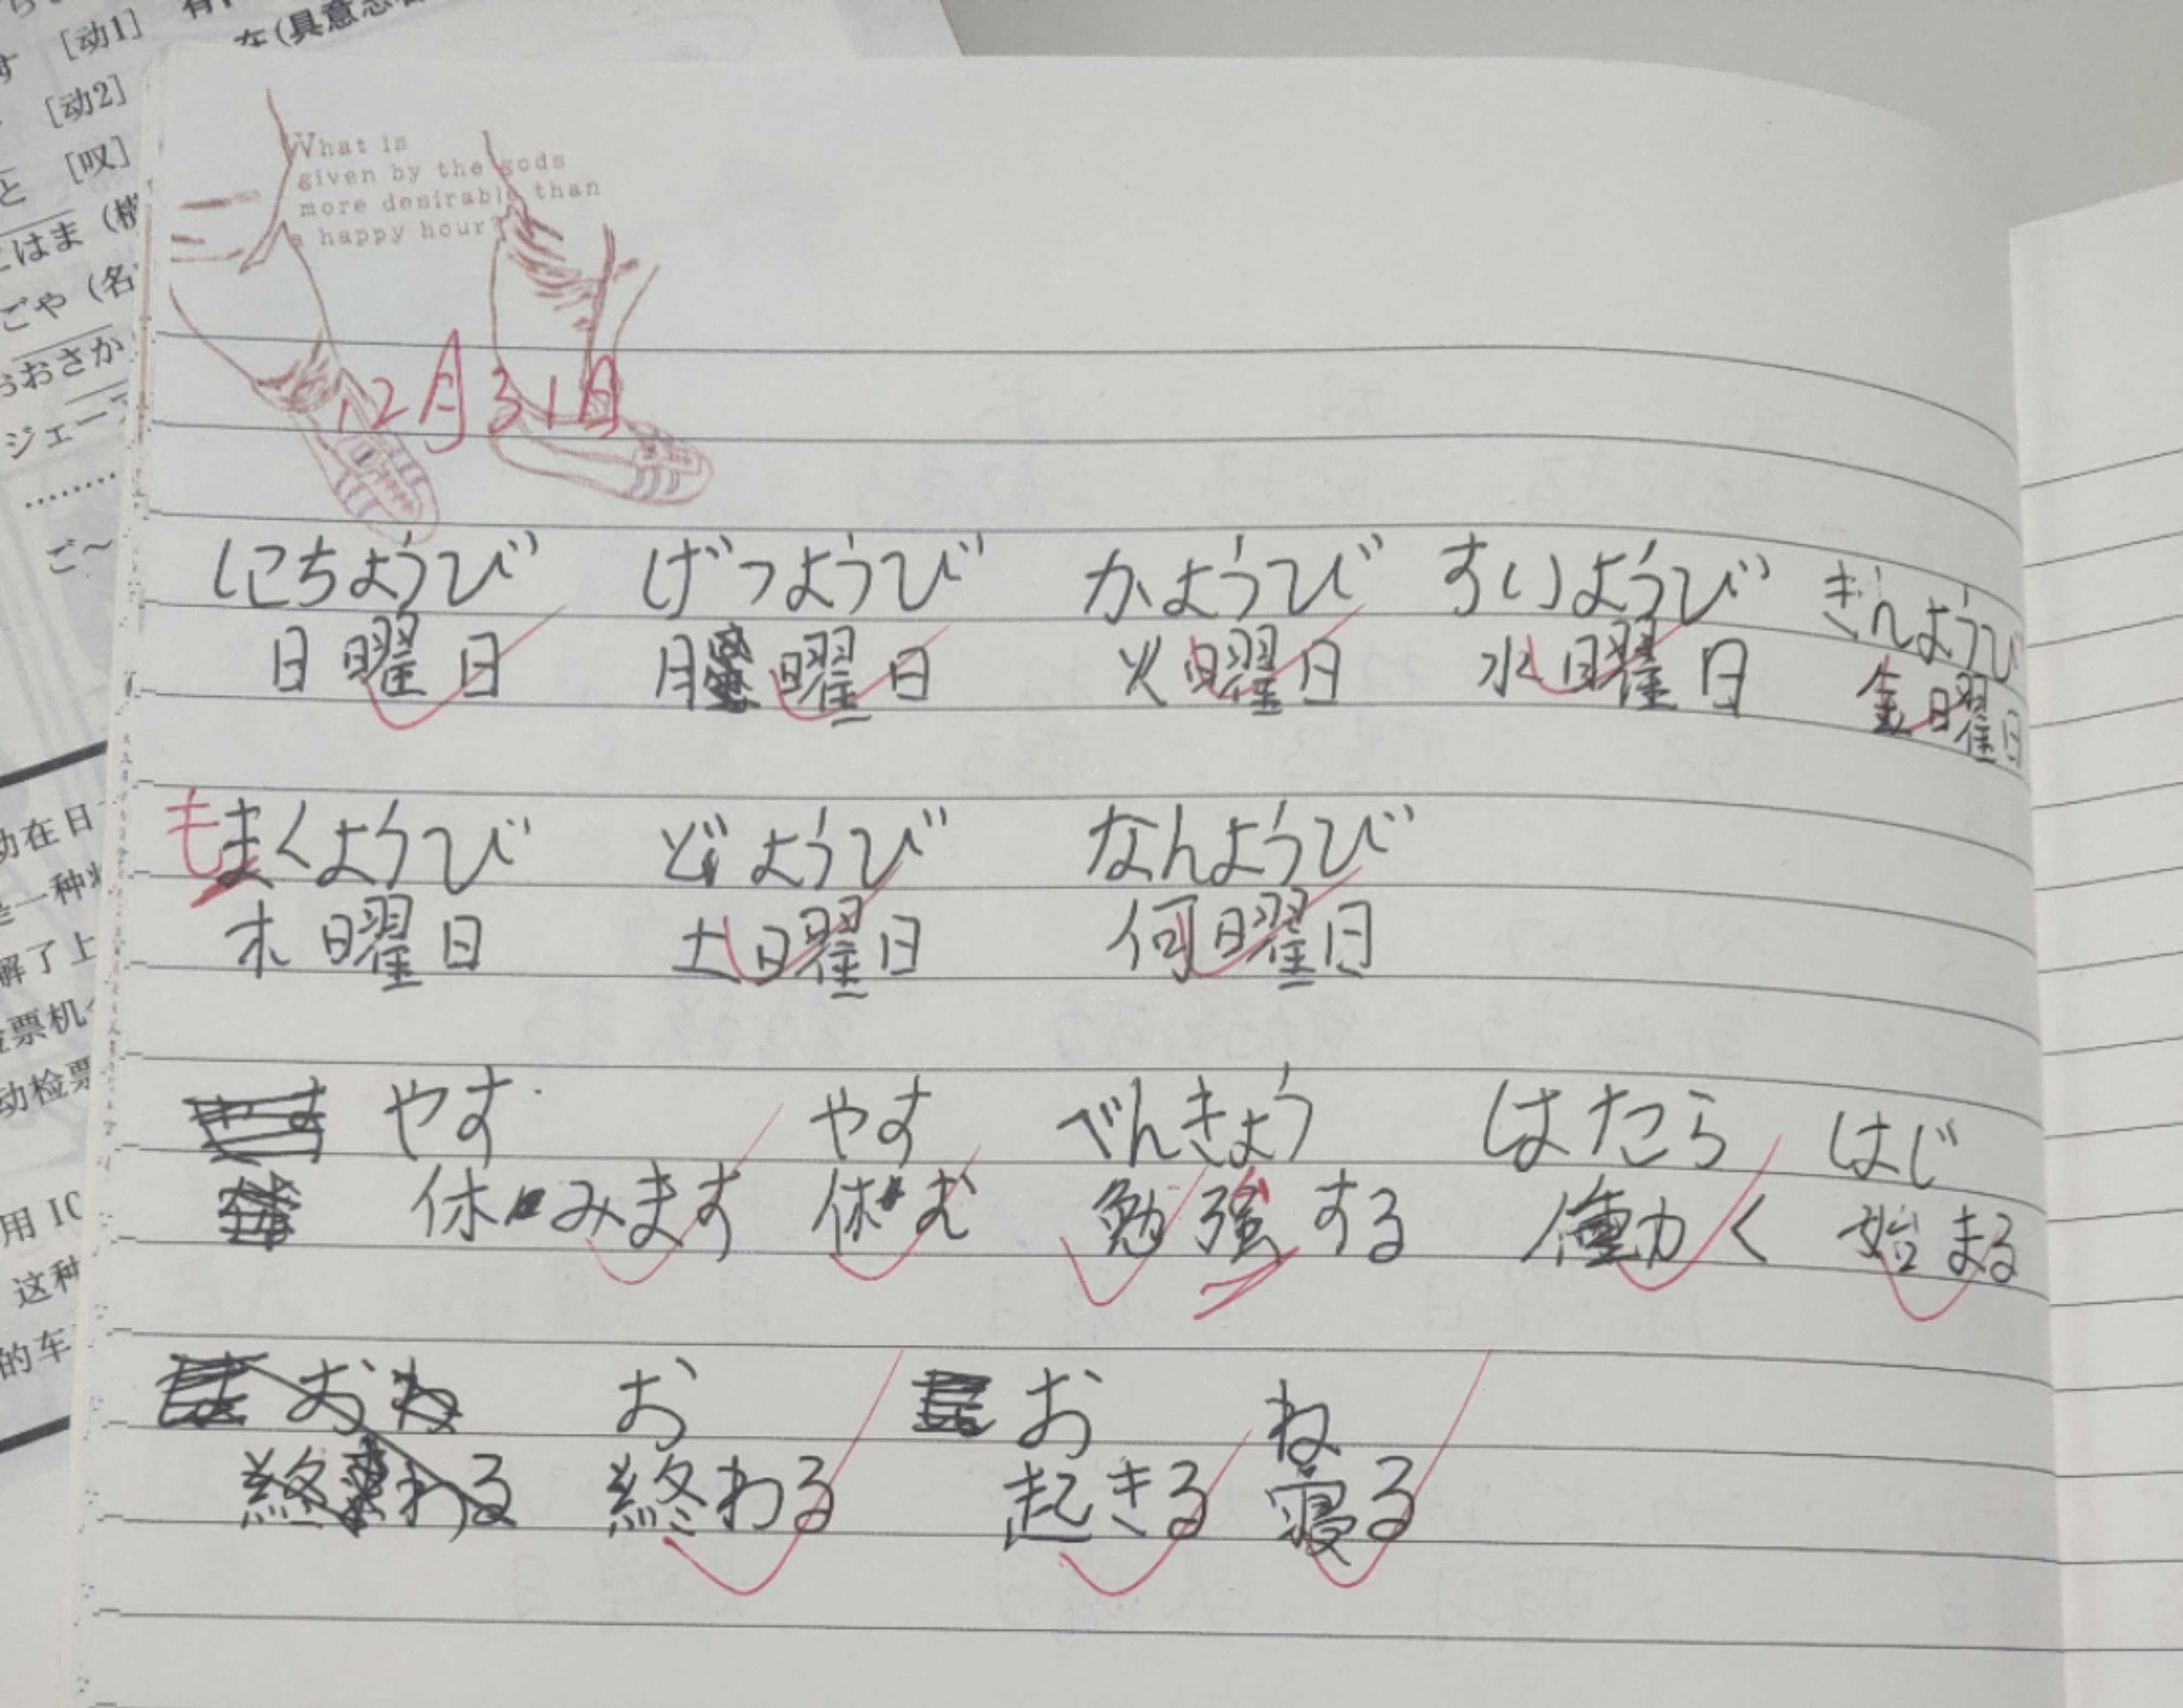 [动1]
[动2]
[叹]
在(具意志
はま (横
ごや (名
おおさか
ジェー
........
ご～
动在日
是一种
解了上
票机
动检票
用 IC
这种
的车
What is
given by the gods
more desirable than
a happy hour?
12月31日
にちようび げつようび かようび すいようび ぎんようび
日曜日 月曜日 火曜日 水曜日 金曜日
も
まくようび どようび なんようび
木曜日 土曜日 何曜日
やす やす べんきょう はたら はじ
休みます 休む 勉強する 働く 始まる
おわ お お ね
終わる 終わる 起きる 寝る